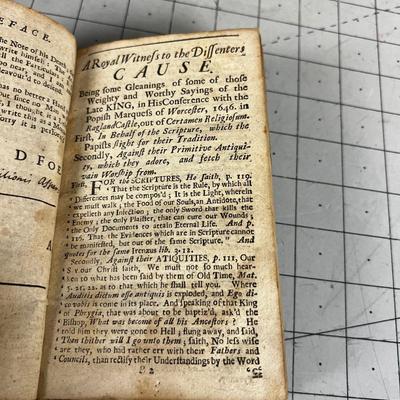 EFACE.
the Note of his Death
write himself: The
till the Particular
now; and I
deavour'd to defend
has no better a Hand
I thought
ry it is per
DFO
A Royal Witness to the Dissenters
CAUSE.
Being some Gleanings of some of those
Weighty and Worthy Sayings of the
Late KING, in His Conference with the
Popish Marquess of Worcester, 1646. in
Ragland Castle, out of Certamen Religiosum.
First, In Behalf of the Scripture, which the
Papists slight for their Tradition.
Secondly, Against their Primitive Antiqui-
ty, which they adore, and fetch their
vain Worship from.
First, FOR the SCRIPTURES, He saith, p. 119.
‘ That the Scripture is the Rule, by which all
‘ Differences may be compos'd; It is the Light, wherein
‘ we must walk; the Food of our Souls, an Antidote, that
‘ expelleth any Infection; the only Sword, that kills the
‘ Enemy; the only Plaister, that can cure our Wounds;
‘ the only Documents to attain Eternal Life. And p.
‘ 116. That the Evidences which are in Scripture cannot
‘ be manifested, but out of the same Scripture.” And
quotes for the same Irenæus lib. 3. 12.
Secondly, Against their ATIQUITIES, p. 111, Our
‘ S viour Christ saith, We must not so much hear-
‘ ken to what has been said by them of Old Time, Mat.
‘ 5. 21, 22. as to that which he shall tell you. Where
‘ Auditis dictum esse antiquis is exploded, and Ego di-
‘ co vobis is come in its place, And speaking of that King
‘ of Phrygia, that was about to be baptiz'd, ask'd the
‘ Bishop, What was become of all his Ancestors? He
‘ told him they were gone to Hell; flung away, and said,
‘ Than thither will I go unto them; saith, No less wise
‘ are they, who had rather err with their Fathers and
‘ Councils, than rectify their Understandings by the Word
B 2